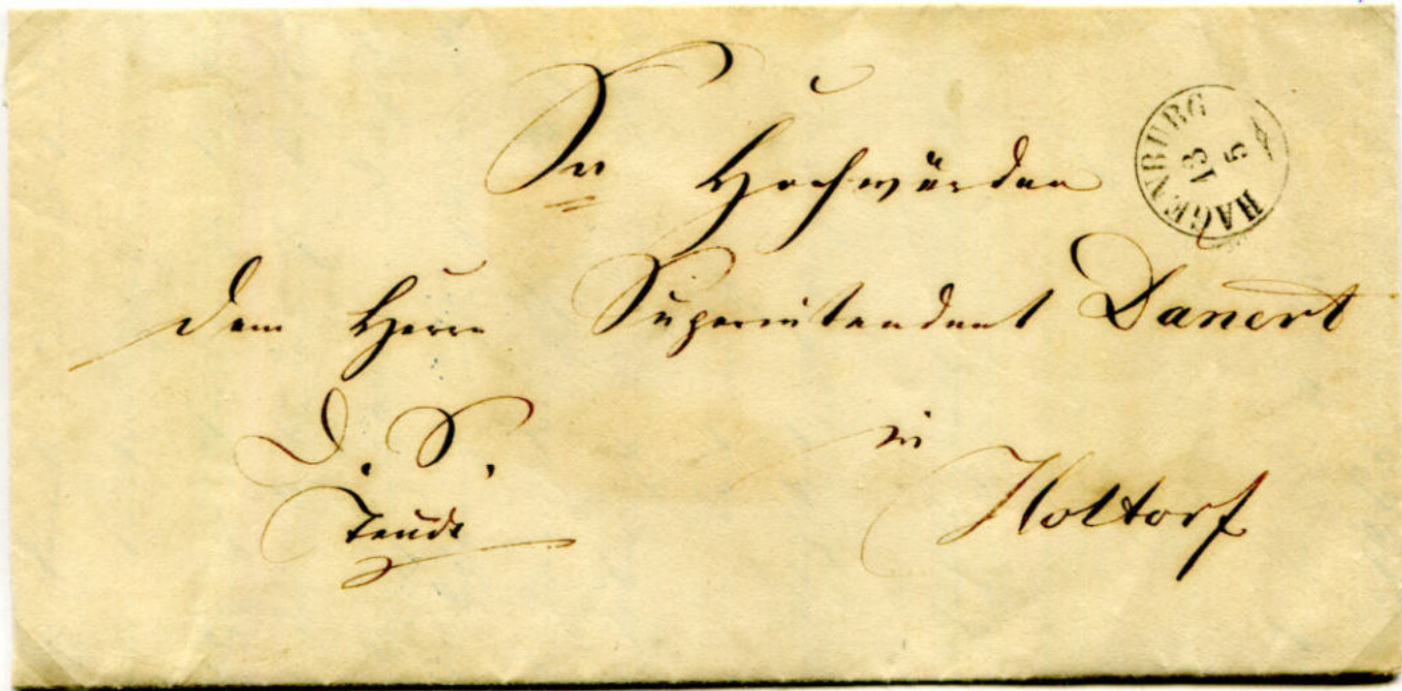 Sr Hochwürden
HAGENBURG
13
5
dem Herrn Superintendent Danert
D. S.
in
Holtorf